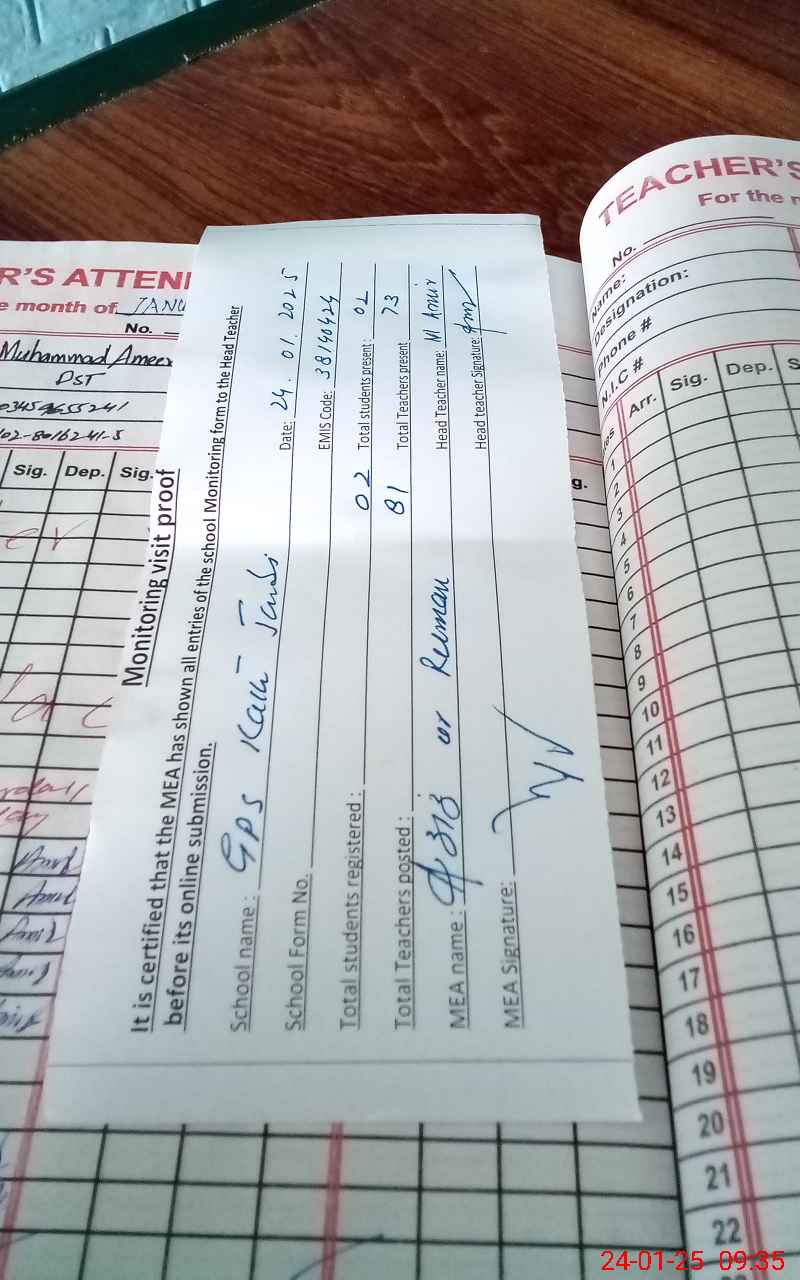 Monitoring visit proof
It is certified that the MEA has shown all entries of the school Monitoring form to the Head Teacher
before its online submission.
School name: GPS Date: 24.01.2025
School Form No. EMIS Code: 38140424
Total students registered: 02 Total students present: 02
Total Teachers posted: 81 Total Teachers present 73
MEA name: Head Teacher name: M Amir
MEA Signature: Head teacher Signature:
R'S ATTEN
e month of JANU
No.
Muhammad Ameer
PST
Sig. Dep. Sig.
g.
TEACHER'S
For the
No.
Name:
Designation:
Phone #
N.I.C #
Arr. Sig. Dep. S
1
2
3
4
5
6
7
8
9
10
11
12
13
14
15
16
17
18
19
20
21
22
24-01-25 09:35